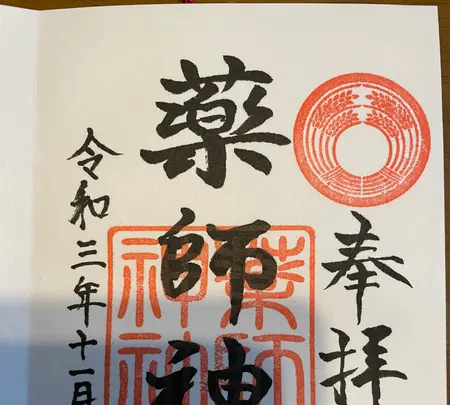 奉拝
薬師神
令和三年十一月
薬師
神社